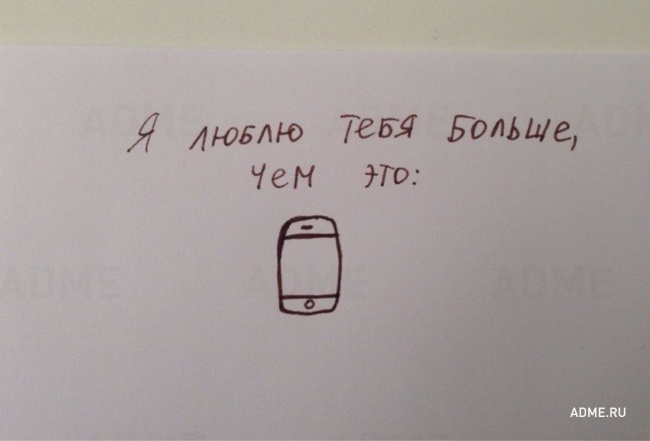 Я люблю тебя больше,
чем это:
ADME.RU